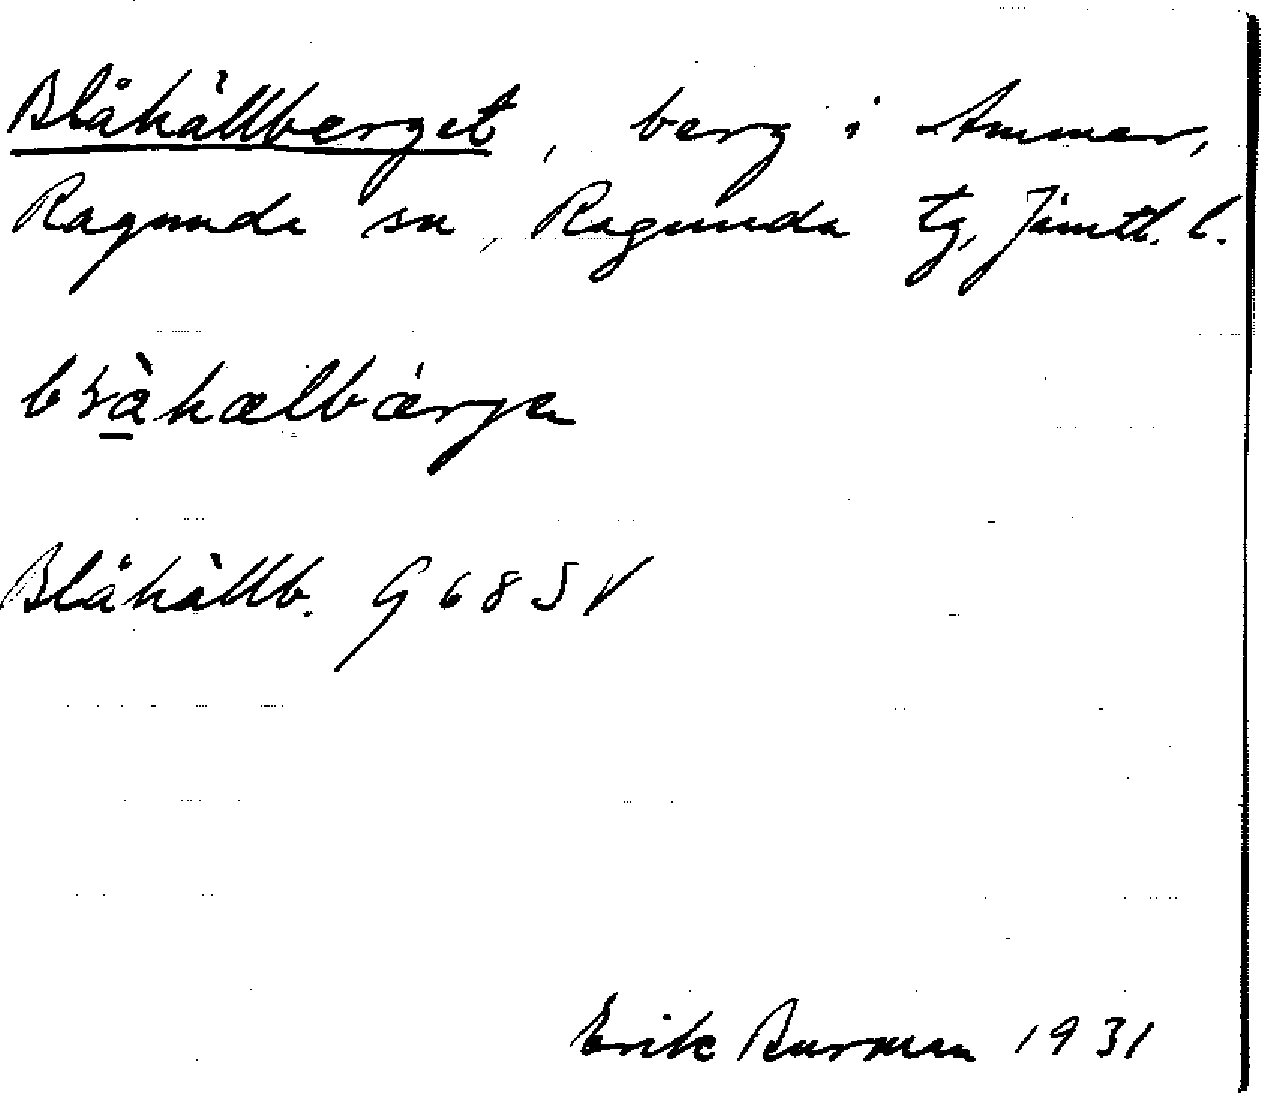 Blåhällberget, berg i Ammer,
Ragunda sn, Ragunda tg, Jämtl. l.
Blåhällb. G 68 SV
Erik Burman 1931